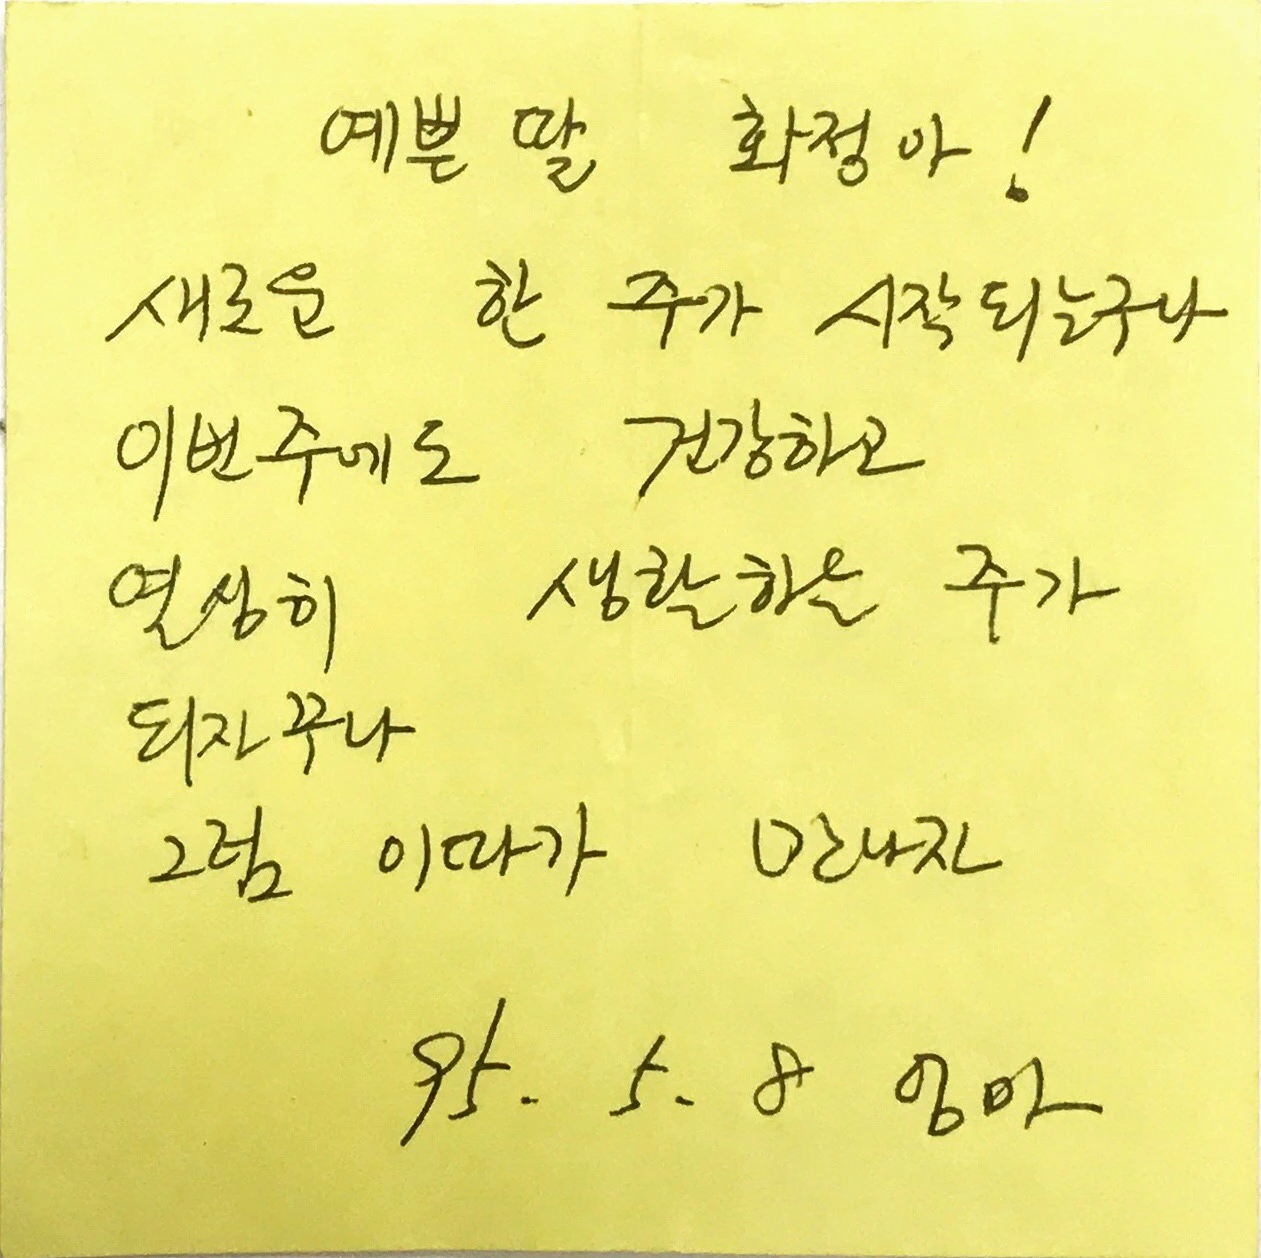 예쁜 딸 화정아!
새로운 한 주가 시작되는구나
이번주에도 건강하고
열심히 생활하는 주가
되자꾸나
그럼 이따가 만나자
95. 5. 8 엄마